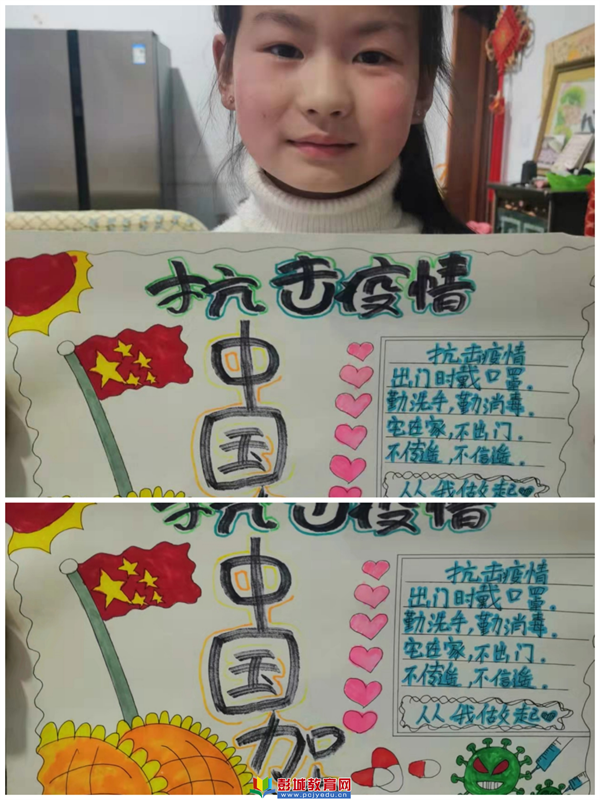 抗击疫情
中国
抗击疫情
出门时戴口罩。
勤洗手,勤消毒。
宅在家,不出门。
不传谣,不信谣。
人人我做起
抗击疫情
中国加
抗击疫情
出门时戴口罩。
勤洗手,勤消毒。
宅在家,不出门。
不传谣,不信谣。
人人我做起
彭城教育网
www.pcjyedu.cn